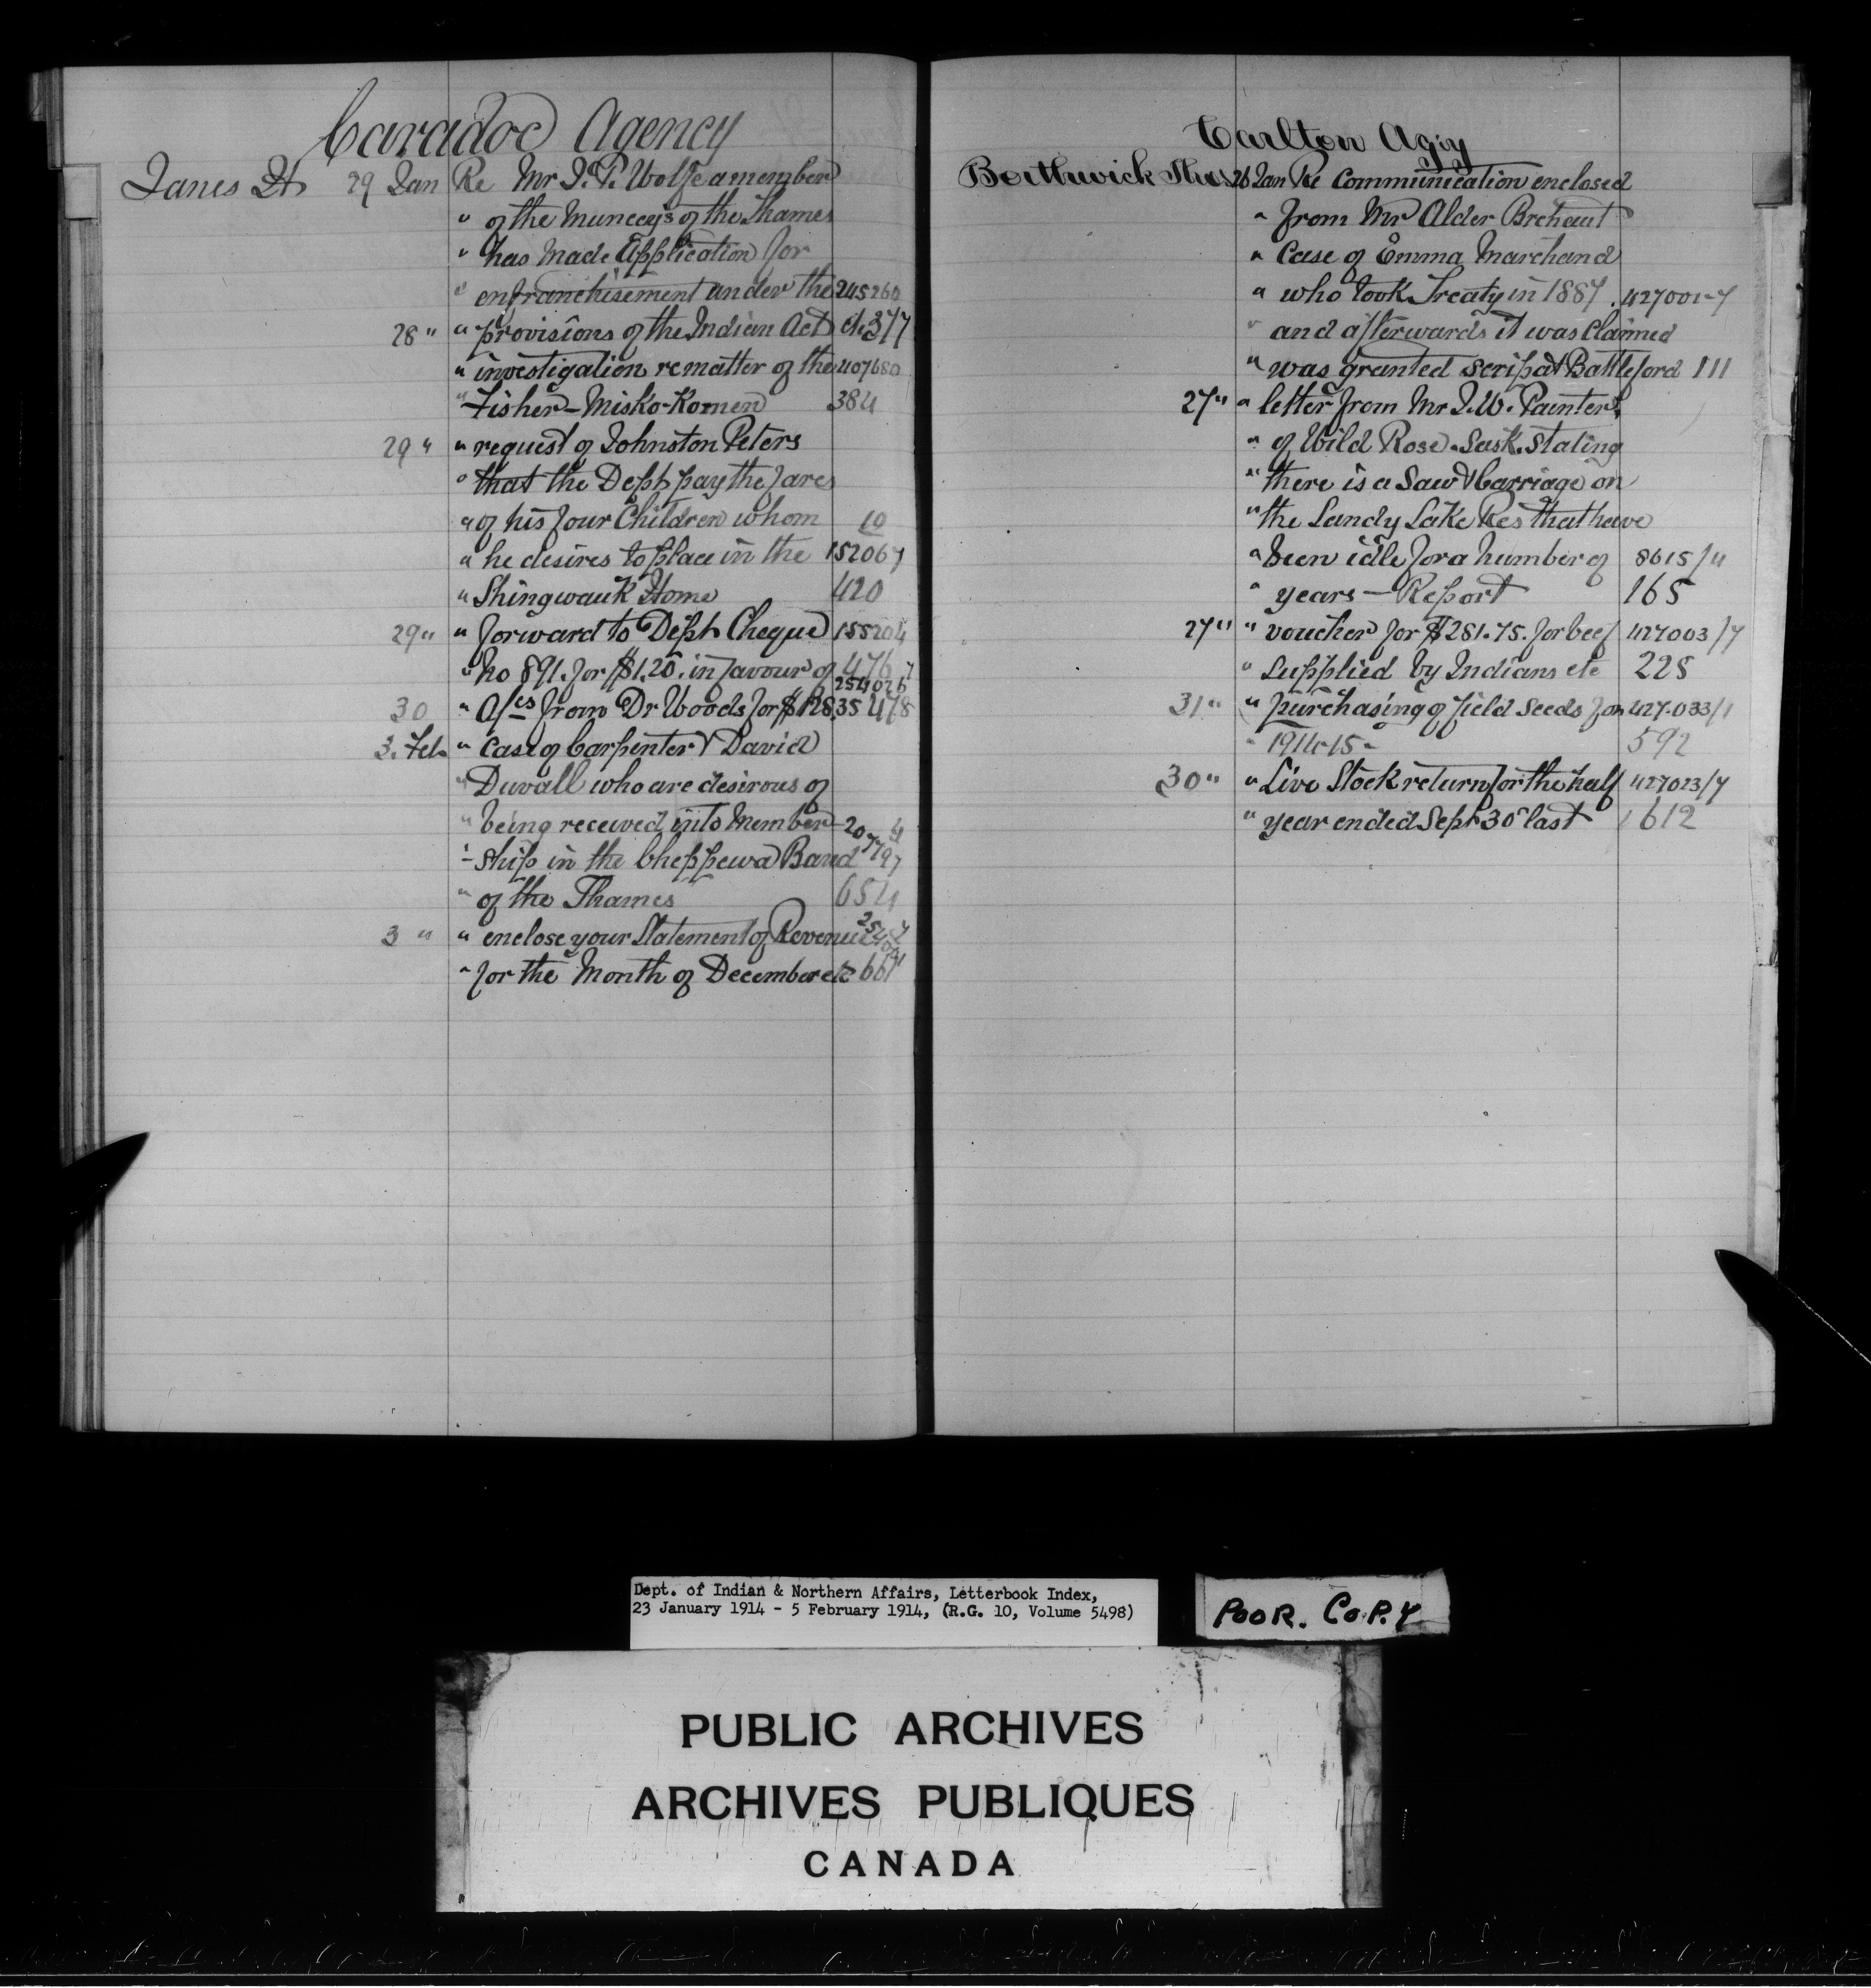 Caradoc Agency
Janes Dt 29 Jan Re Mr J. P. Wolfe a member
" of the Muncey's of the Thames
" has made Application for
" enfranchisement under the 245260
28 " " provisions of the Indian Act etc 377
" investigation re matter of the 407680
" Fisher - Misko-Komen 384
29 " " request of Johnston Peters
" that the Dept pay the fares
" of his four Children whom 10
" he desires to place in the 152067
" Shingwauk Home 420
29 " " forward to Dept Cheque 155204
" No 891. for $1.20. in favour of 476
254026
30 " A/cs from Dr Woods for $128.35 478
3. Feb " case of Carpenter & David
" Duvall who are desirous of
" being received into member- 20 4
" -ship in the Cheppewa Band 7797
" of the Thames 654
3 " " enclose your Statement of Revenue
" for the Month of December etc 661
Carlton Agy
Borthwick Thos 26 Jan Re Communication enclosed
" from Mr Alder Brehaut
" Case of Emma Marchand
" who took Treaty in 1887 . 427001-7
" and afterwards it was claimed
" was granted scrip at Battleford 111
27 " " letter from Mr J. W. Painter,
" of Wild Rose. Sask. stating
" there is a Saw & Carriage on
" the Sandy Lake Res that have
" been idle for a number of 8615/4
" years - Report 165
27 " " voucher for $281.75. for beef 427003/7
" supplied by Indians etc 228
31 " " purchasing of field seeds for 427-033/1
" 1914-15- 592
30 " " Live Stock return for the half 427023/7
" year ended Sept 30 last 612
Dept. of Indian & Northern Affairs, Letterbook Index,
23 January 1914 - 5 February 1914, (R.G. 10, Volume 5498)
POOR. COPY
PUBLIC ARCHIVES
ARCHIVES PUBLIQUES
CANADA